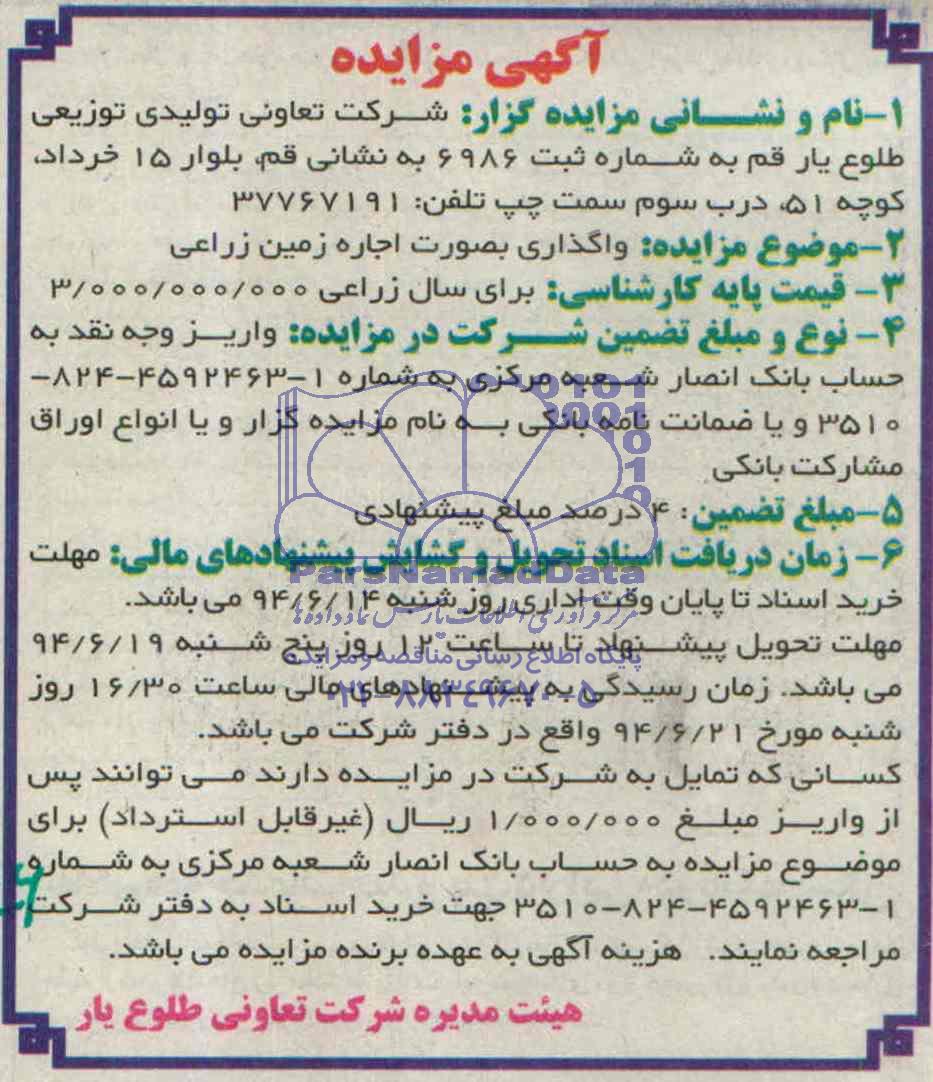 آگهی مزایده
۱-نام و نشانی مزایده گزار: شرکت تعاونی تولیدی توزیعی
طلوع یار قم به شماره ثبت ۶۹۸۶ به نشانی قم، بلوار ۱۵ خرداد،
کوچه ۵۱، درب سوم سمت چپ تلفن: ۳۷۷۶۷۱۹۱
۲-موضوع مزایده: واگذاری بصورت اجاره زمین زراعی
۳- قیمت پایه کارشناسی: برای سال زراعی ۳/۰۰۰/۰۰۰/۰۰۰
۴- نوع و مبلغ تضمین شرکت در مزایده: واریز وجه نقد به
حساب بانک انصار شعبه مرکزی به شماره ۱-۴۵۹۲۴۶۳-۸۲۴-
۳۵۱۰ و یا ضمانت نامه بانکی به نام مزایده گزار و یا انواع اوراق
مشارکت بانکی
۵-مبلغ تضمین: ۴ درصد مبلغ پیشنهادی
۶- زمان دریافت اسناد تحویل و گشایش پیشنهادهای مالی: مهلت
خرید اسناد تا پایان وقت اداری روز شنبه ۹۴/۶/۱۴ می باشد.
مهلت تحویل پیشنهاد تا ساعت ۱۲ روز پنج شنبه ۹۴/۶/۱۹
می باشد. زمان رسیدگی به پیشنهادهای مالی ساعت ۱۶/۳۰ روز
شنبه مورخ ۹۴/۶/۲۱ واقع در دفتر شرکت می باشد.
کسانی که تمایل به شرکت در مزایده دارند می توانند پس
از واریز مبلغ ۱/۰۰۰/۰۰۰ ریال (غیرقابل استرداد) برای
موضوع مزایده به حساب بانک انصار شعبه مرکزی به شماره
۱-۴۵۹۲۴۶۳-۸۲۴-۳۵۱۰ جهت خرید اسناد به دفتر شرکت
مراجعه نمایند. هزینه آگهی به عهده برنده مزایده می باشد.
هیئت مدیره شرکت تعاونی طلوع یار
ParsNamadData
مرکز فرآوری اطلاعات پارس نماد داده ها
پایگاه اطلاع رسانی مناقصه و مزایده